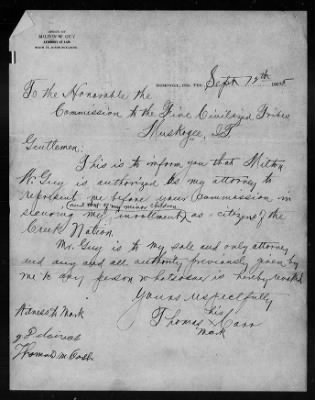 OFFICE OF
MILTON W. GUY
ATTORNEY AT LAW
Sept 12th
To the Honorable the
Commission to the Five Civilized Tribes
Muskogee, I.T.
Gentlemen:
This is to inform you that Milton
W. Guy is authorized as my attorney to
represent me before your Commission in
(and that of my minor children)
securing my enrollment as citizens of the
Creek Nation.
Mr. Guy is to my sole and only attorney
and any and all authority previously given by
me to any person whatsoever is hereby revoked
Yours respectfully
his
Thomas x Carr
mark
Witness to Mark
Thomas M